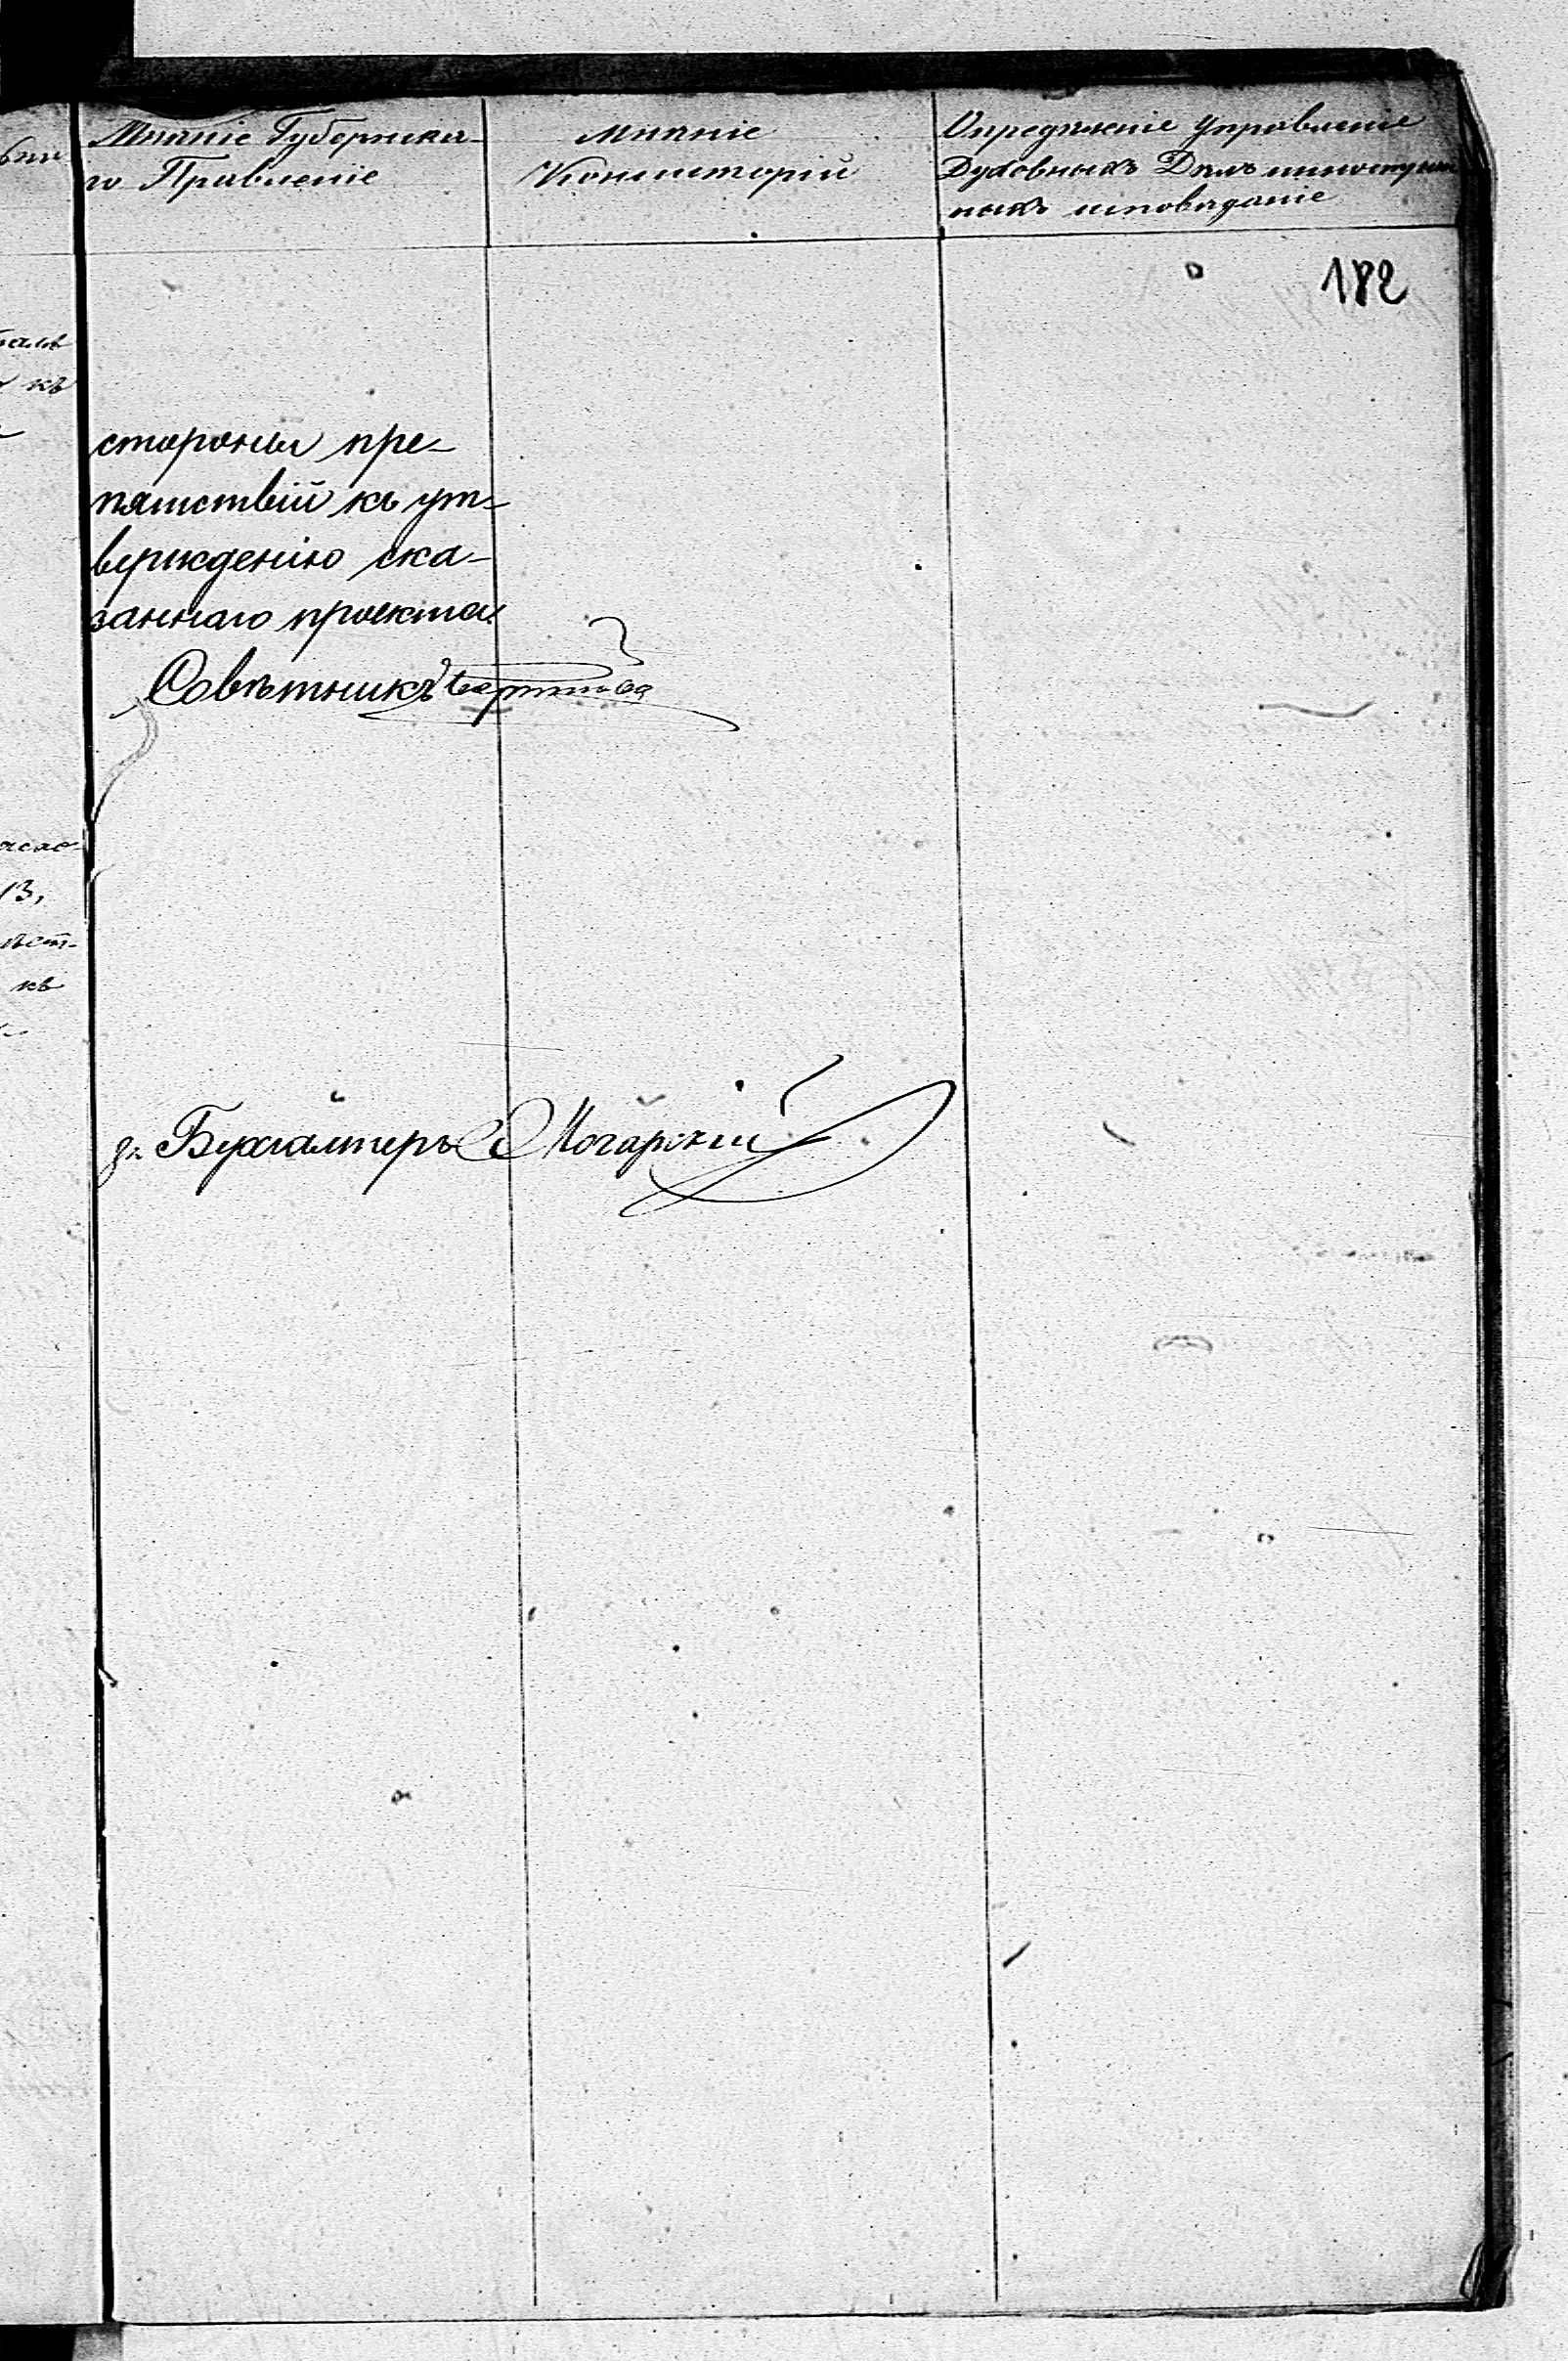 Мнѣніе Губернска-
го Правленіе
мнѣніе
Консисторій
Опредѣленіе Управленіе
Духовныхъ Дѣлъ иностран
ныхъ исповѣданіе
182
къ
стороны пре-
пятствій къ ут-
вержденію ска-
заннаго проекта.
Совѣтникъ
13,
къ
Бухгалтеръ